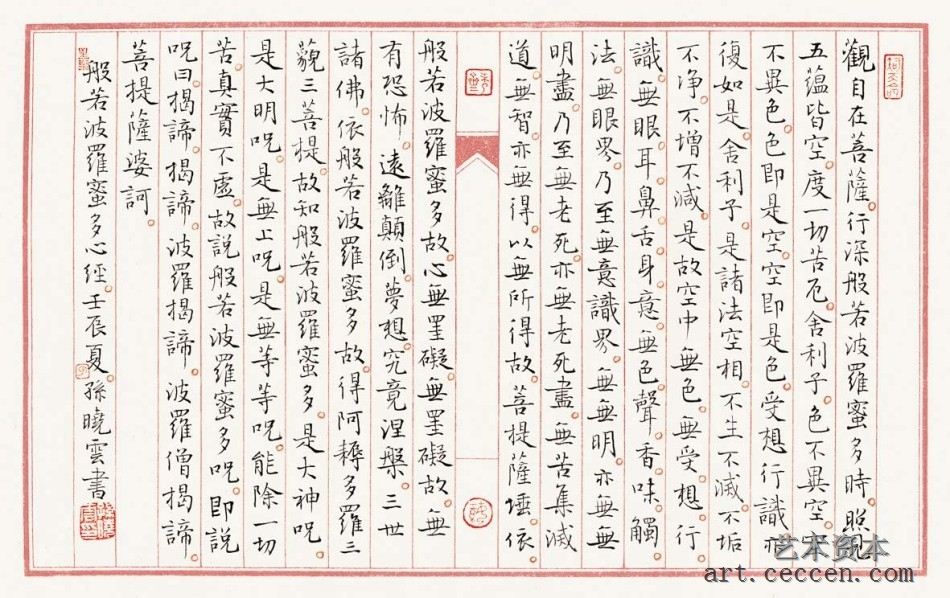 觀自在菩薩。行深般若波羅蜜多時。照見
五蘊皆空。度一切苦厄。舍利子。色不異空。空
不異色。色即是空。空即是色。受想行識。亦
復如是。舍利子。是諸法空相。不生不滅。不垢
不净。不增不减。是故空中無色。無受想行
識。無眼耳鼻舌身意。無色聲香味觸
法。無眼界。乃至無意識界。無無明。亦無無
明盡。乃至無老死。亦無老死盡。無苦集滅
道。無智亦無得。以無所得故。菩提薩埵。依
般若波羅蜜多故。心無罣礙。無罣礙故。無
有恐怖。遠離顛倒夢想。究竟涅槃。三世
諸佛。依般若波羅蜜多故。得阿耨多羅三
藐三菩提。故知般若波羅蜜多。是大神呪。
是大明呪。是無上呪。是無等等呪。能除一切
苦。真實不虛。故說般若波羅蜜多呪。即說
呪曰。揭諦。揭諦。波羅揭諦。波羅僧揭諦。
菩提薩婆訶。
般若波羅蜜多心經。壬辰夏。孫曉雲書
艺术资本
art.ceccen.com